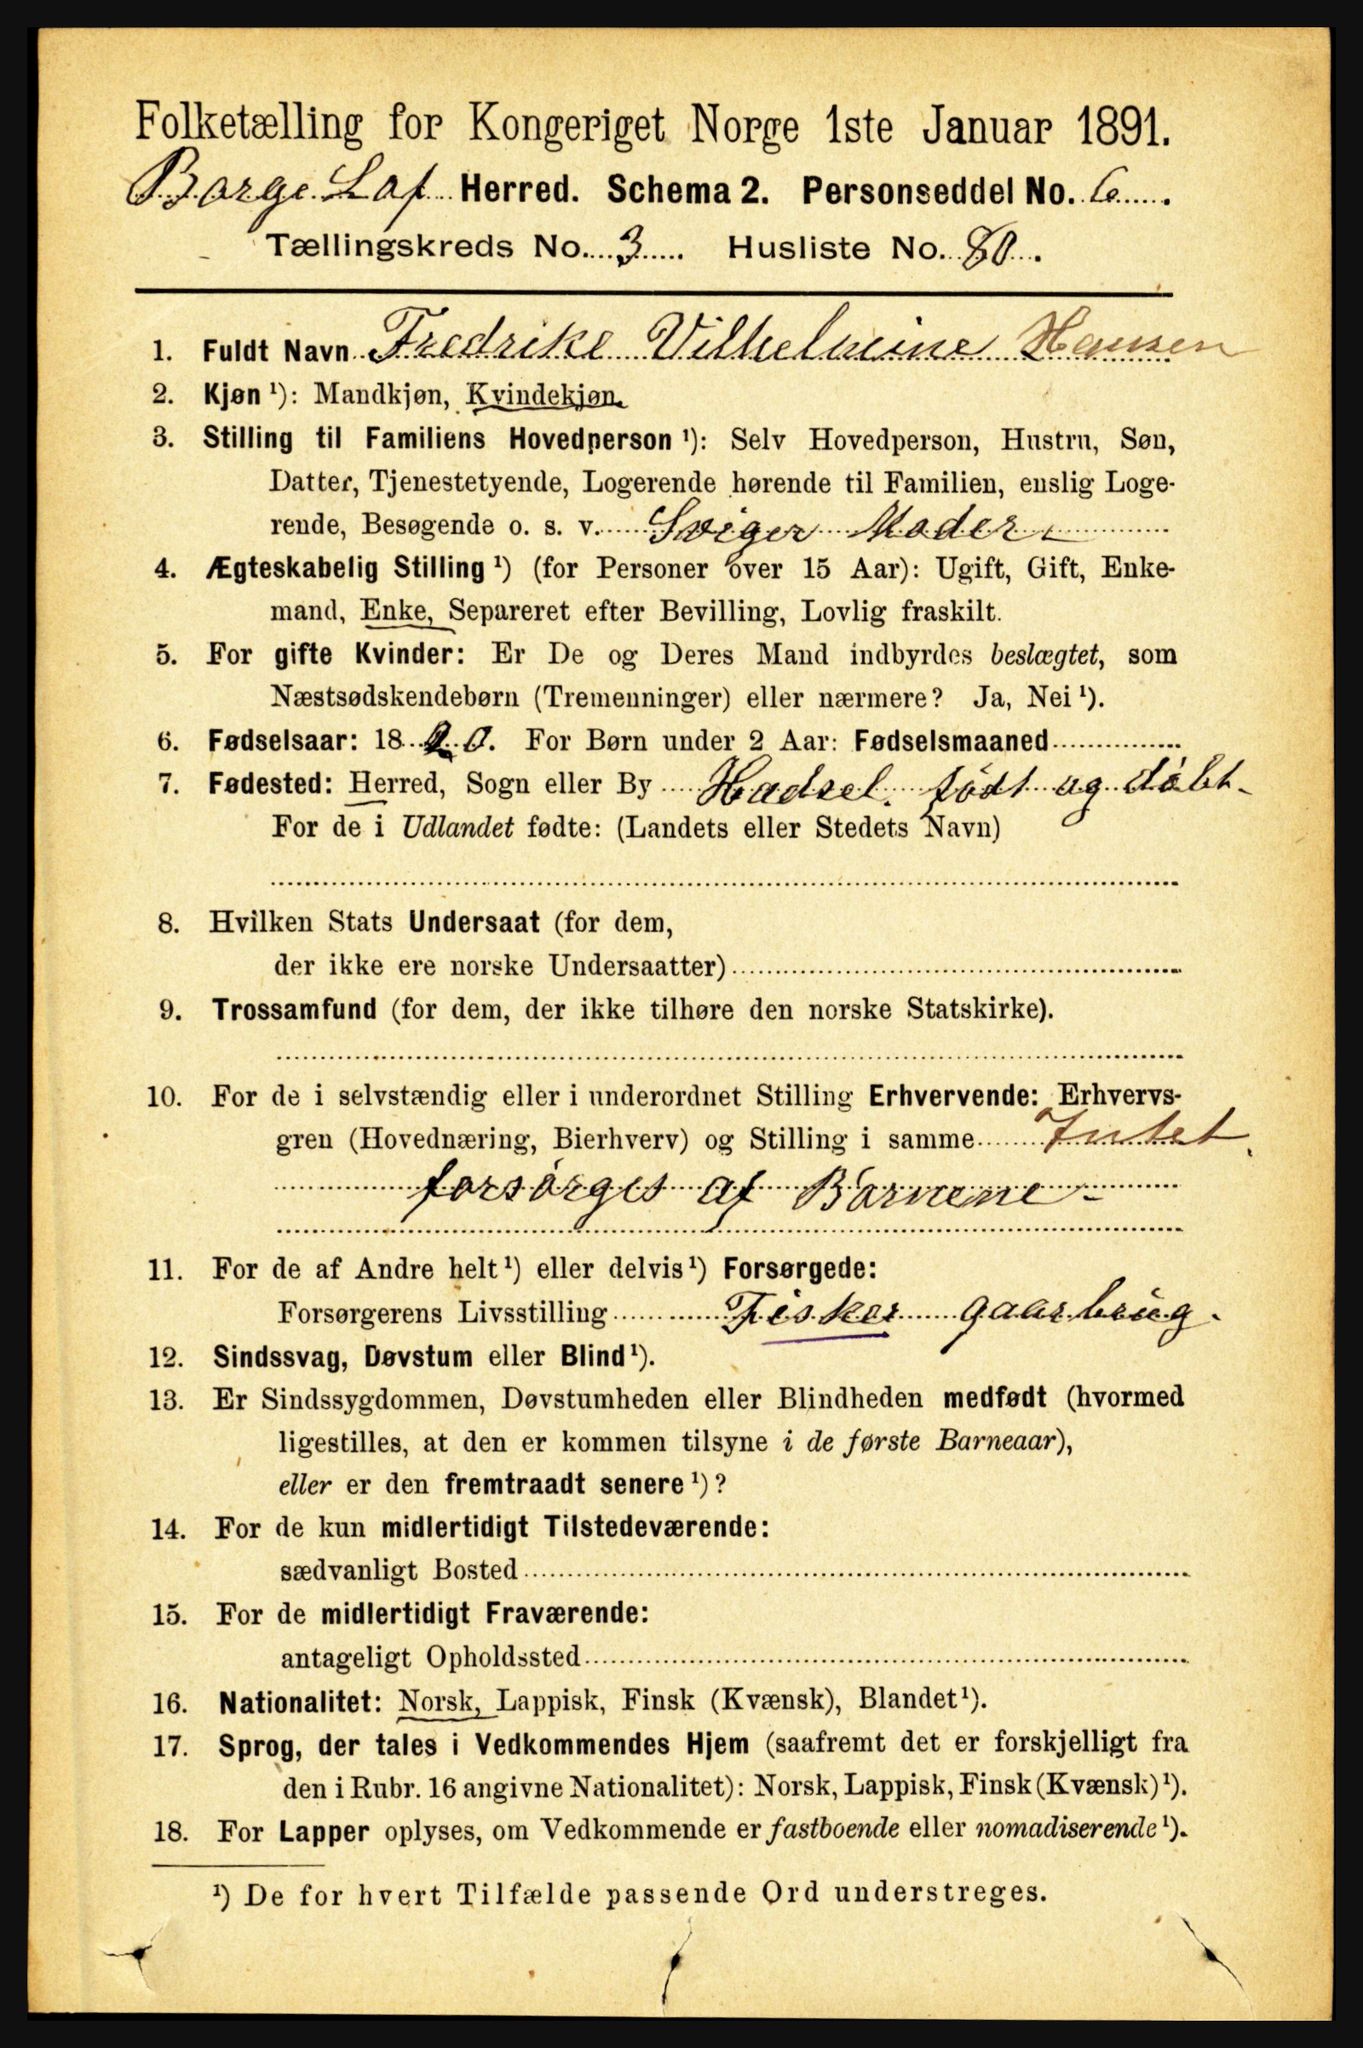 Folketælling for Kongeriget Norge 1ste Januar 1891.
Borge Lof Herred. Schema 2. Personseddel No. 6.
Tællingskreds No. 3. Husliste No. 80.
1. Fuldt Navn Fredrike Vilhelmine Hansen
2. Kjøn ¹): Mandkjøn, Kvindekjøn.
3. Stilling til Familiens Hovedperson ¹): Selv Hovedperson, Hustru, Søn,
Datter, Tjenestetyende, Logerende hørende til Familien, enslig Loge-
rende, Besøgende o. s. v. Sviger Moder
4. Ægteskabelig Stilling ¹) (for Personer over 15 Aar): Ugift, Gift, Enke-
mand, Enke, Separeret efter Bevilling, Lovlig fraskilt.
5. For gifte Kvinder: Er De og Deres Mand indbyrdes beslægtet, som
Næstsødskendebørn (Tremenninger) eller nærmere? Ja, Nei ¹).
6. Fødselsaar: 1820. For Børn under 2 Aar: Fødselsmaaned
7. Fødested: Herred, Sogn eller By Hadsel. født og døbt.
For de i Udlandet fødte: (Landets eller Stedets Navn)
8. Hvilken Stats Undersaat (for dem,
der ikke ere norske Undersaatter)
9. Trossamfund (for dem, der ikke tilhøre den norske Statskirke).
10. For de i selvstændig eller i underordnet Stilling Erhvervende: Erhvervs-
gren (Hovednæring, Bierhverv) og Stilling i samme Intet,
forsørges af Børnene
11. For de af Andre helt ¹) eller delvis ¹) Forsørgede:
Forsørgerens Livsstilling Fisker gaarbrug.
12. Sindssvag, Døvstum eller Blind ¹).
13. Er Sindssygdommen, Døvstumheden eller Blindheden medfødt (hvormed
ligestilles, at den er kommen tilsyne i de første Barneaar),
eller er den fremtraadt senere ¹)?
14. For de kun midlertidigt Tilstedeværende:
sædvanligt Bosted
15. For de midlertidigt Fraværende:
antageligt Opholdssted
16. Nationalitet: Norsk, Lappisk, Finsk (Kvænsk), Blandet ¹).
17. Sprog, der tales i Vedkommendes Hjem (saafremt det er forskjelligt fra
den i Rubr. 16 angivne Nationalitet): Norsk, Lappisk, Finsk (Kvænsk) ¹).
18. For Lapper oplyses, om Vedkommende er fastboende eller nomadiserende ¹).
¹) De for hvert Tilfælde passende Ord understreges.